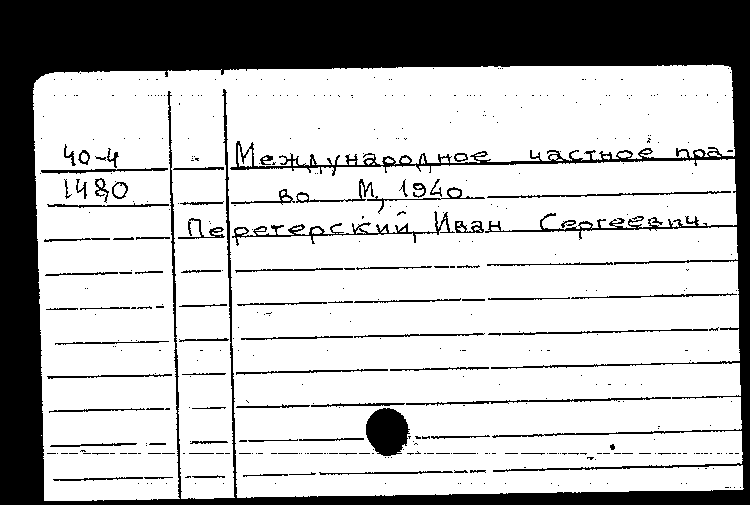 40-4 Международное частное пра-
1480 во М, 1940
Перетерский, Иван Сергеевич.